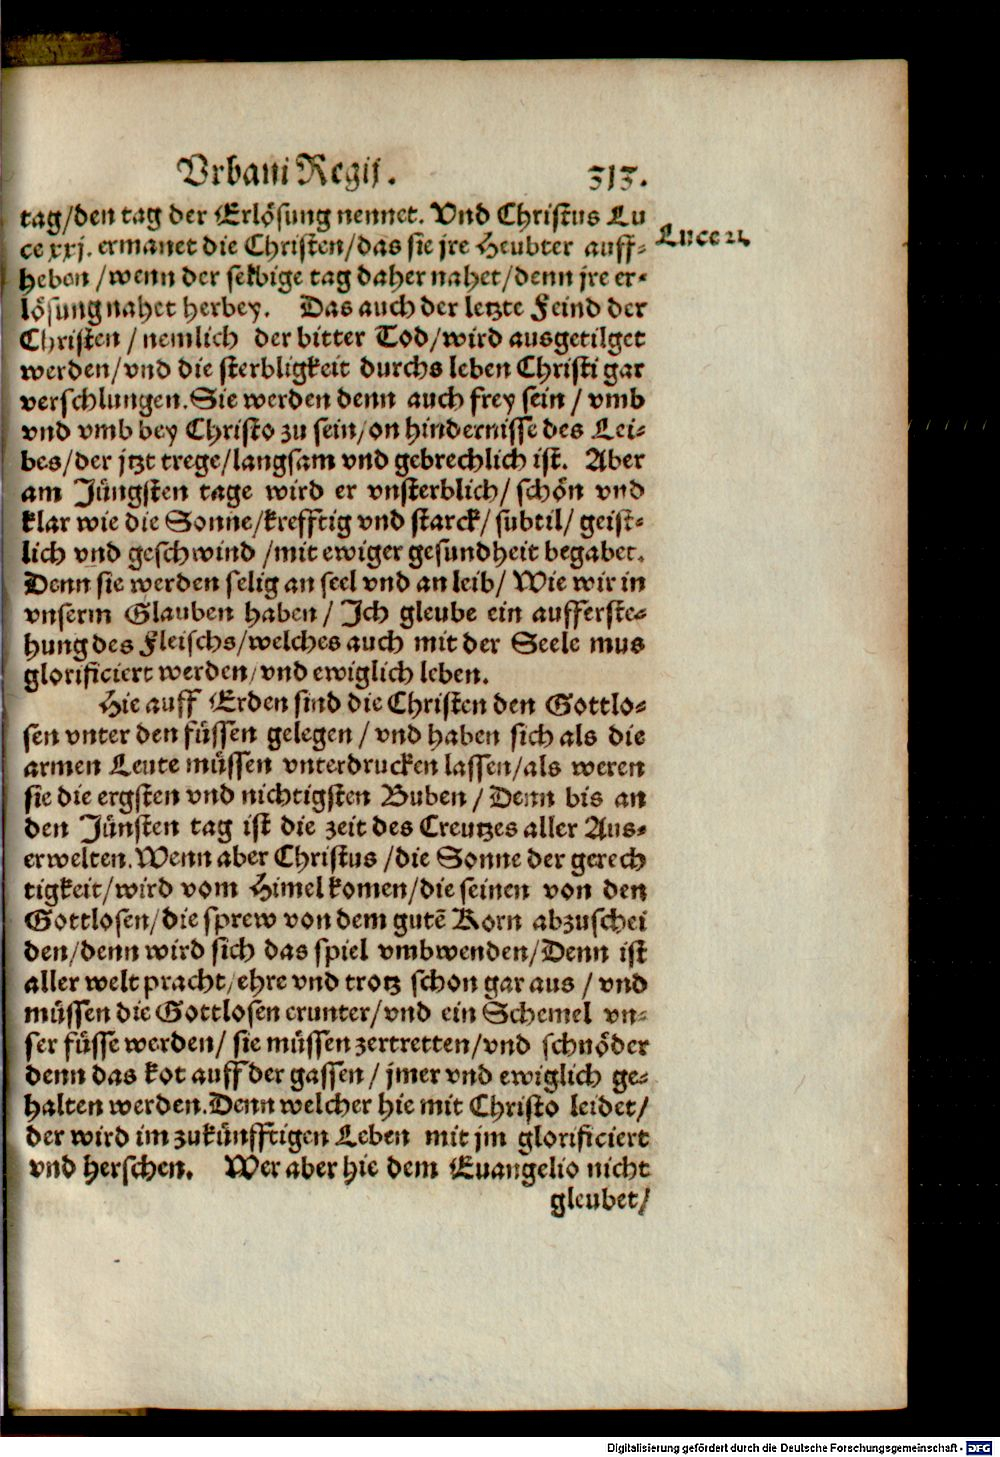 Vrbani Regij. 313.
tag/den tag der Erlösung nennet. Vnd Christus Lu
ce xxj. ermanet die Christen/das sie jre Heubter auff-
heben/wenn der selbige tag daher nahet/denn jre er-
lösung nahet herbey. Das auch der letzte Feind der
Christen/nemlich der bitter Tod/wird ausgetilget
werden/vnd die sterbligkeit durchs leben Christi gar
verschlungen. Sie werden denn auch frey sein/vmb
vnd vmb bey Christo zu sein/on hindernisse des Lei-
bes/der jtzt trege/langsam vnd gebrechlich ist. Aber
am Jüngsten tage wird er vnsterblich/schön vnd
klar wie die Sonne/krefftig vnd starck/subtil/geist-
lich vnd geschwind/mit ewiger gesundheit begabet.
Denn sie werden selig an seel vnd an leib/Wie wir in
vnserm Glauben haben/Ich gleube ein aufferste-
hung des Fleischs/welches auch mit der Seele mus
glorificiert werden/vnd ewiglich leben.
Hie auff Erden sind die Christen den Gottlo-
sen vnter den füssen gelegen/vnd haben sich als die
armen Leute müssen vnterdrucken lassen/als weren
sie die ergsten vnd nichtigsten Buben/Denn bis an
den Jünsten tag ist die zeit des Creutzes aller Aus-
erwelten. Wenn aber Christus/die Sonne der gerech
tigkeit/wird vom Himel komen/die seinen von den
Gottlosen/die sprew von dem gutē Korn abzuschei
den/denn wird sich das spiel vmbwenden/Denn ist
aller welt pracht/ehre vnd trotz schon gar aus/vnd
müssen die Gottlosen erunter/vnd ein Schemel vn-
ser füsse werden/sie müssen zertretten/vnd schnöder
denn das kot auff der gassen/jmer vnd ewiglich ge-
halten werden. Denn welcher hie mit Christo leidet/
der wird im zukünfftigen Leben mit jm glorificiert
vnd herschen. Wer aber hie dem Euangelio nicht
gleubet/
Luce 21
Digitalisierung gefördert durch die Deutsche Forschungsgemeinschaft - DFG